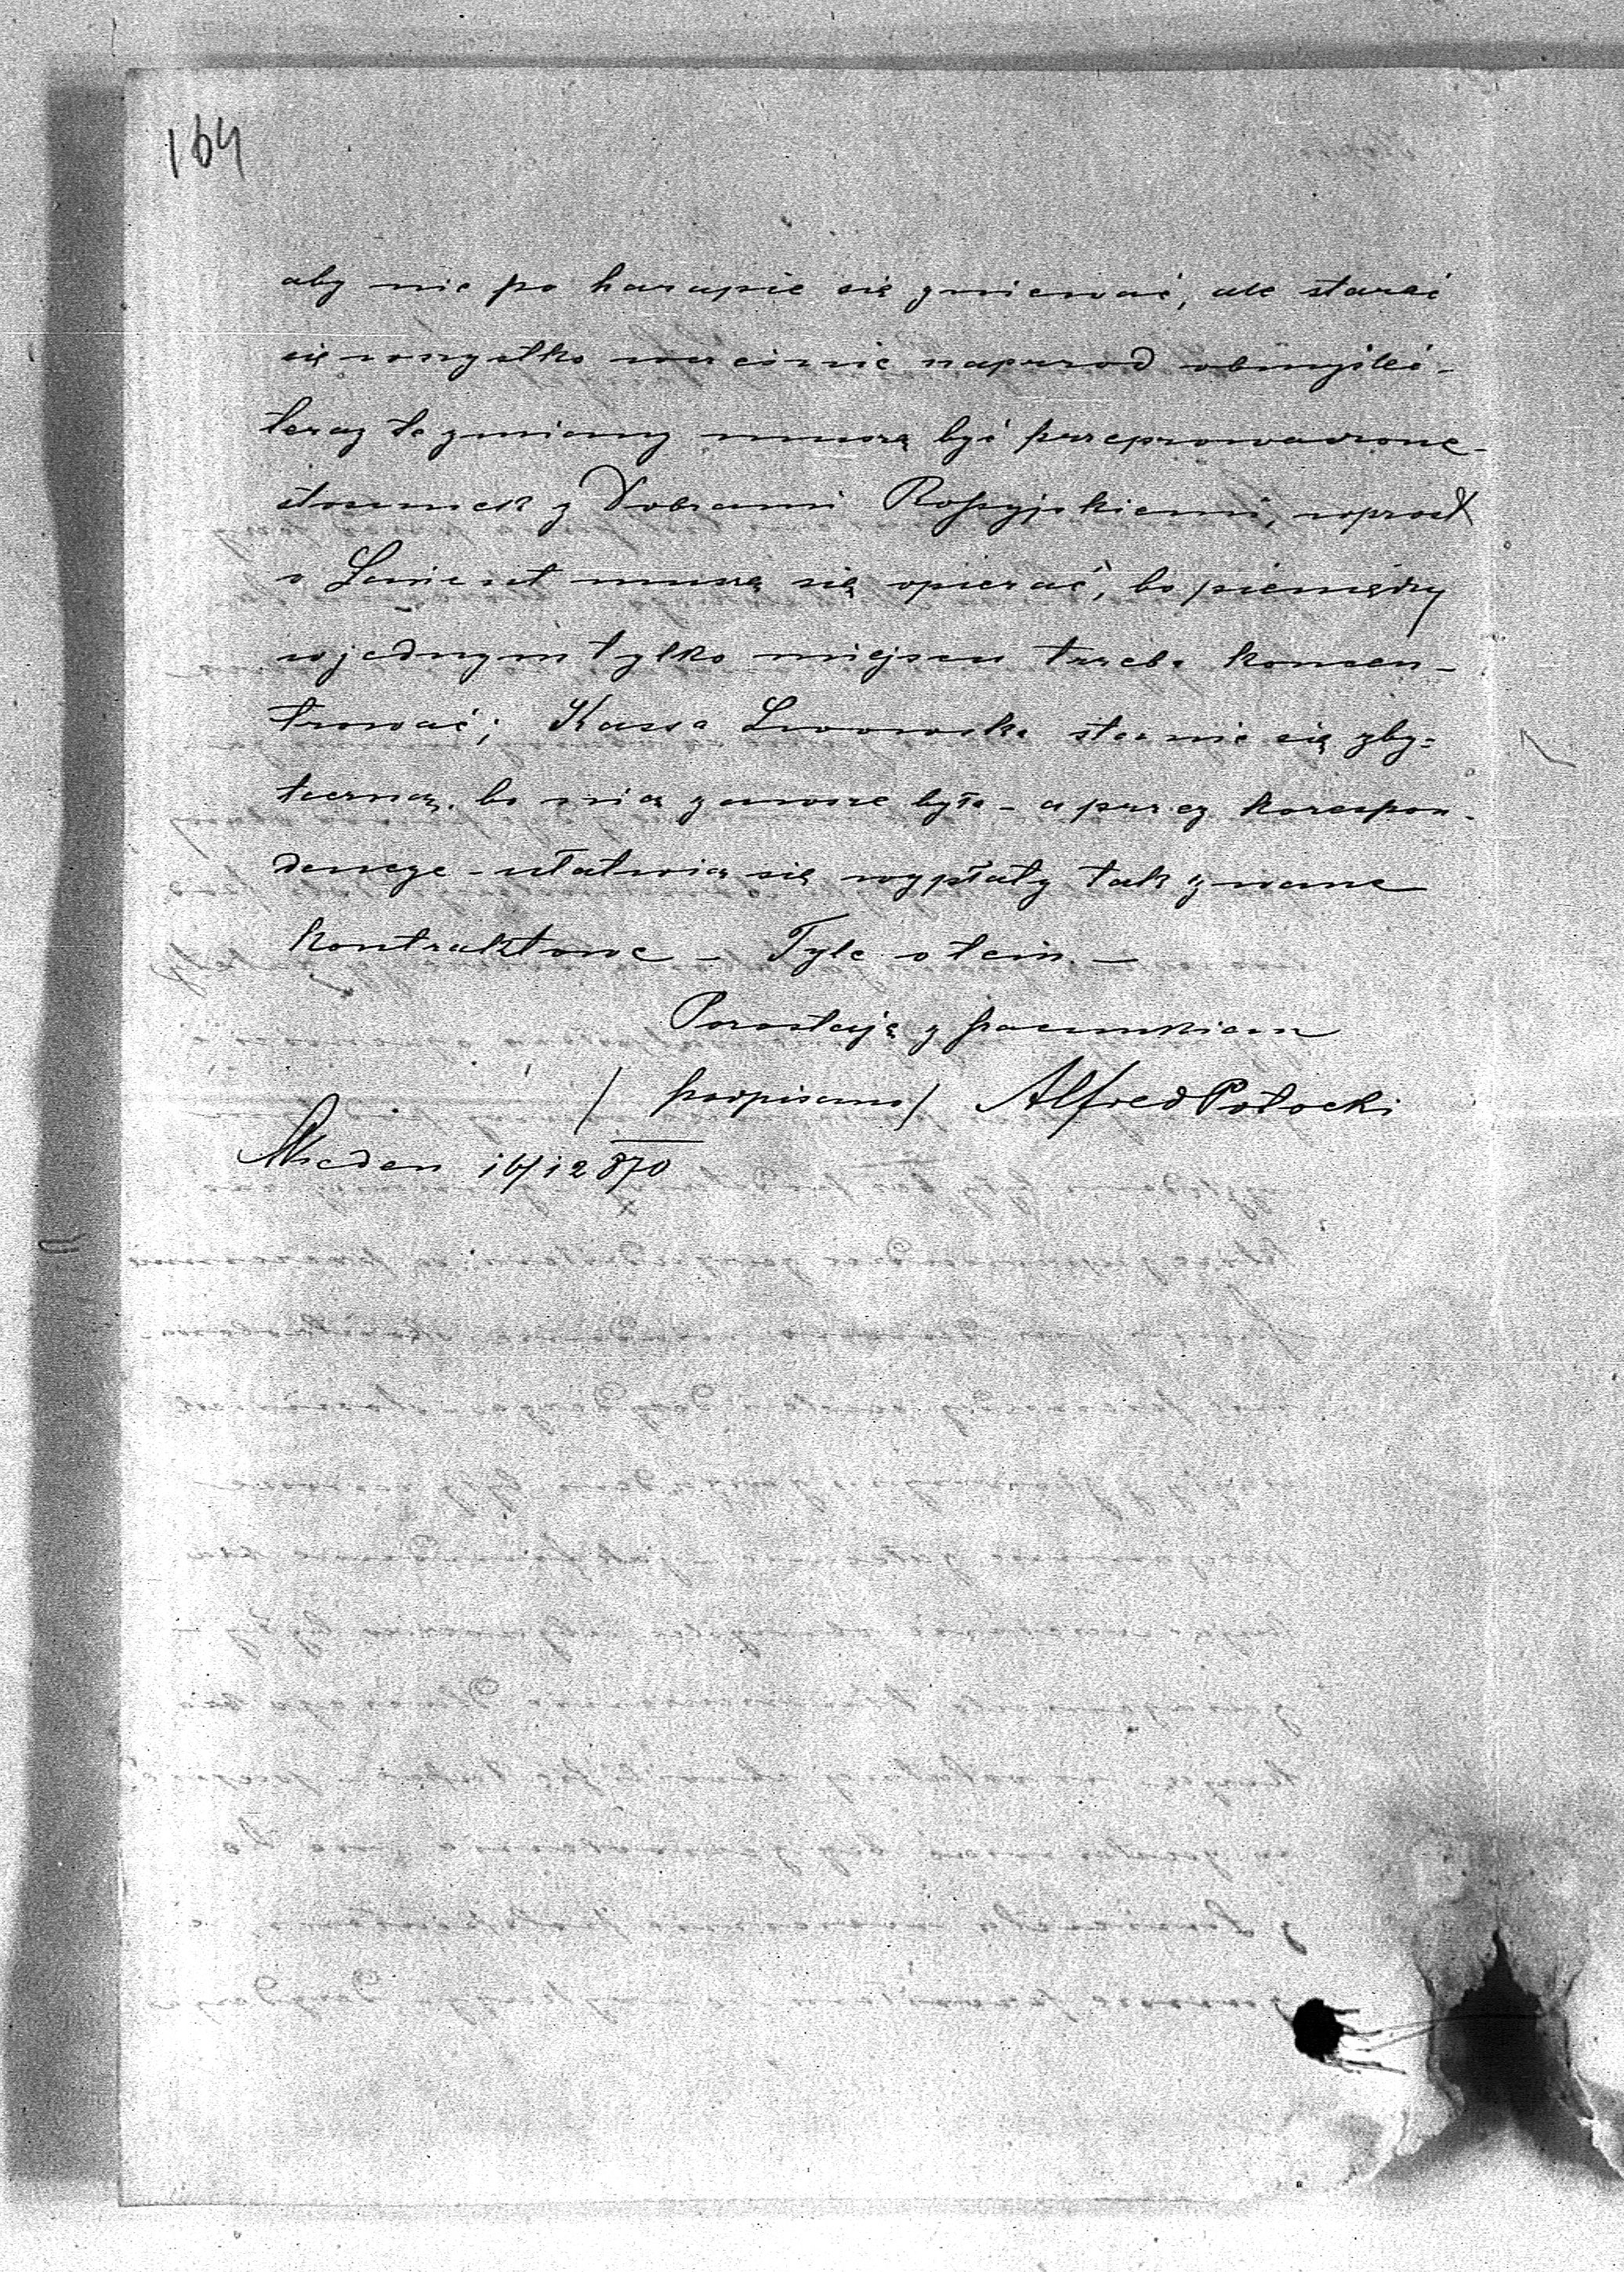 164
aby nie po harapie się gniewać, ale starać
się wszystko wcześnie naprzod obmyśleć -
teraz te zmiany muszą być przeprowadzone -
stosunek z Dobrami Rossyjskiemi, wprost
o Łańcut muszą się opierać, bo pieniędzy
w jednym tylko miejscu trzeba koncen-
trować; Kassa Lwowska stanie się zby-
teczną, bo nią zawsze była - a przez korespon-
dencye - ułatwią się wypłaty tak zwane
kontraktowe - Tyle o tem. -
Pozostaję z szacunkiem
/ podpisano / Alfred Potocki
Wiedeń 16/12 870